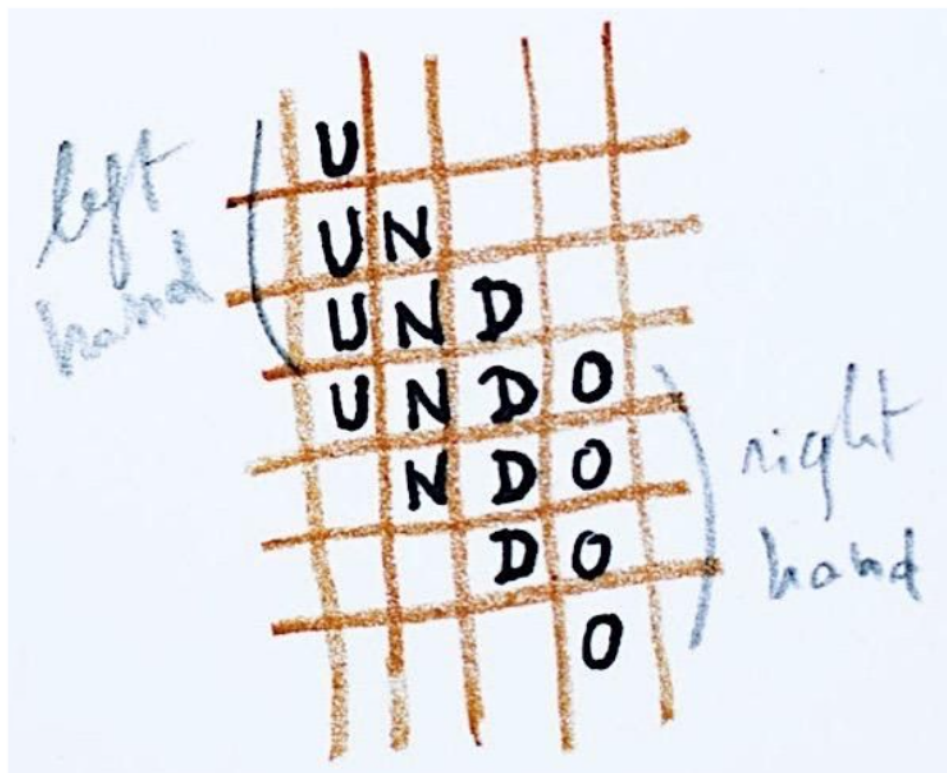 left
hand
U
U N
U N D
U N D O
N D O
D O
O
right
hand